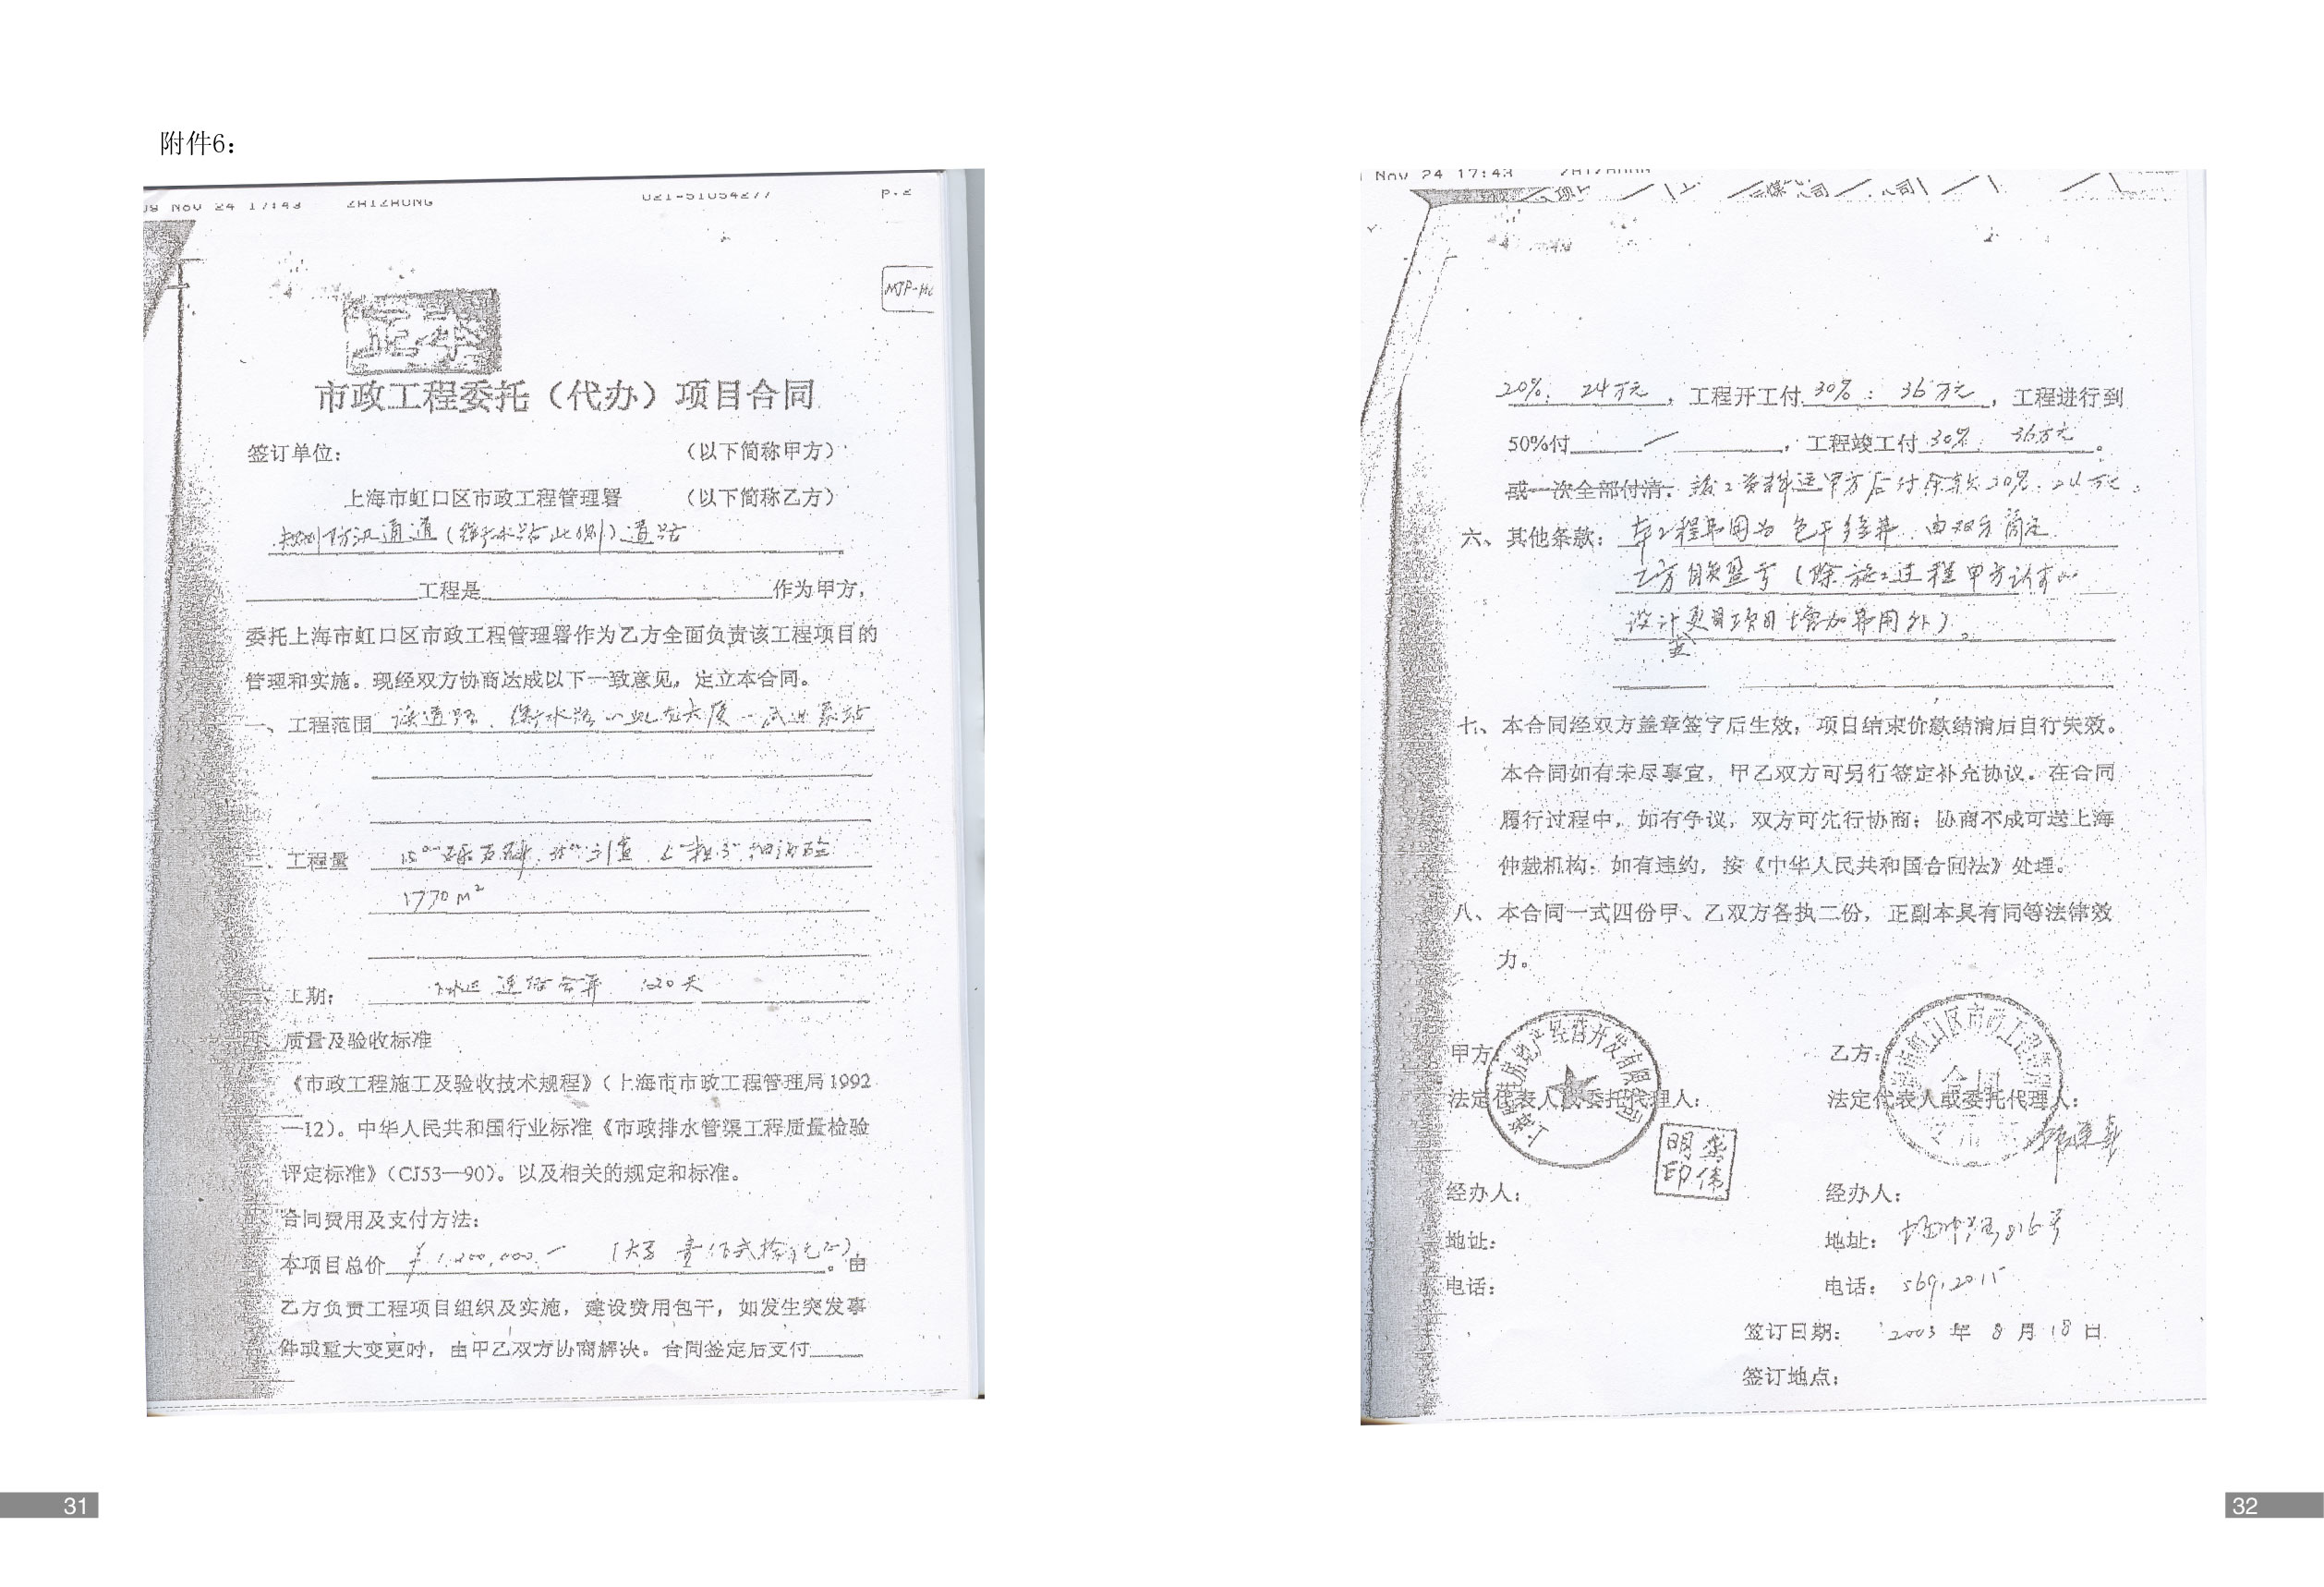 附件6：
Nov 24 17:43 ZHIZHONG 021-51054277 P.2
正本
市政工程委托（代办）项目合同
签订单位： （以下简称甲方）
上海市虹口区市政工程管理署 （以下简称乙方）
规划防汛通道（衡水路北侧）道路
工程是 作为甲方，
委托上海市虹口区市政工程管理署作为乙方全面负责该工程项目的
管理和实施。现经双方协商达成以下一致意见，定立本合同。
一、工程范围 该道路、衡水路
二、工程量
1770 m²
三、工期： 120天
四、质量及验收标准
《市政工程施工及验收技术规程》（上海市市政工程管理局1992
—12）。中华人民共和国行业标准《市政排水管渠工程质量检验
评定标准》（CJ53—90）。以及相关的规定和标准。
合同费用及支付方法：
本项目总价 ￥1,200,000.— （大写 壹佰贰拾 ）。由
乙方负责工程项目组织及实施，建设费用包干，如发生突发事
件或重大变更时，由甲乙双方协商解决。合同签定后支付
31
Nov 24 17:43 ZHIZHONG
20%： 24万元，工程开工付30%： 36万元，工程进行到
50%付 / ，工程竣工付30%： 36万元。
或一次全部付清。竣工资料送甲方后付余款20%：24万元。
六、其他条款： 本工程费用为包干结算，由双方商定
乙方自负盈亏（除施工过程甲方认可的
设计变更项目增加费用外）。
七、本合同经双方盖章签字后生效，项目结束价款结清后自行失效。
本合同如有未尽事宜，甲乙双方可另行签定补充协议。在合同
履行过程中，如有争议，双方可先行协商；协商不成可送上海
仲裁机构；如有违约，按《中华人民共和国合同法》处理。
八、本合同一式四份甲、乙双方各执二份，正副本具有同等法律效
力。
甲方： 乙方：
法定代表人或委托代理人： 法定代表人或委托代理人：
龚伟明印
经办人： 经办人：
地址： 地址： 816号
电话： 电话：
签订日期： 2003 年 8 月 18 日
签订地点：
32